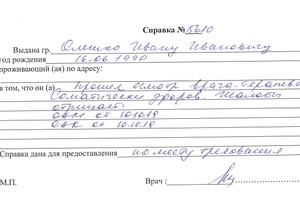 Справка № 5610
Выдана гр. Олешко Ивану Ивановичу
год рождения 16.06.1990
проживающий (ая) по адресу:
в том, что он (а) прошел осмотр врача-терапевта
Соматически здоров. Жалобы
отрицает
от 10.10.19
от 10.10.19
Справка дана для предоставления по месту требования
М.П. Врач :